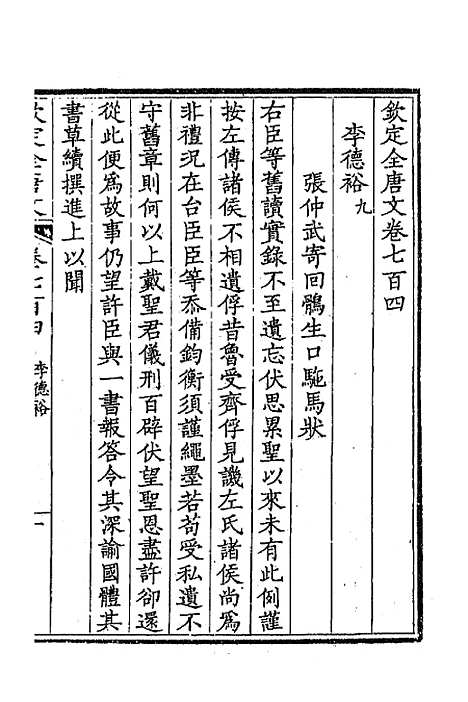 欽定全唐文卷七百四
李德裕九
張仲武寄回鶻生口駞馬狀
右臣等舊讀實錄不至遺忘伏思累聖以來未有此例謹
按左傳諸侯不相遺俘昔魯受齊俘見譏左氏諸侯尚爲
非禮況在台臣臣等忝備鈞衡須謹繩墨若苟受私遺不
守舊章則何以上戴聖君儀刑百辟伏望聖恩盡許卻還
從此便爲故事仍望許臣與一書報答令其深諭國體其
書草續撰進上以聞
欽定全唐文 卷七百四 李德裕 一